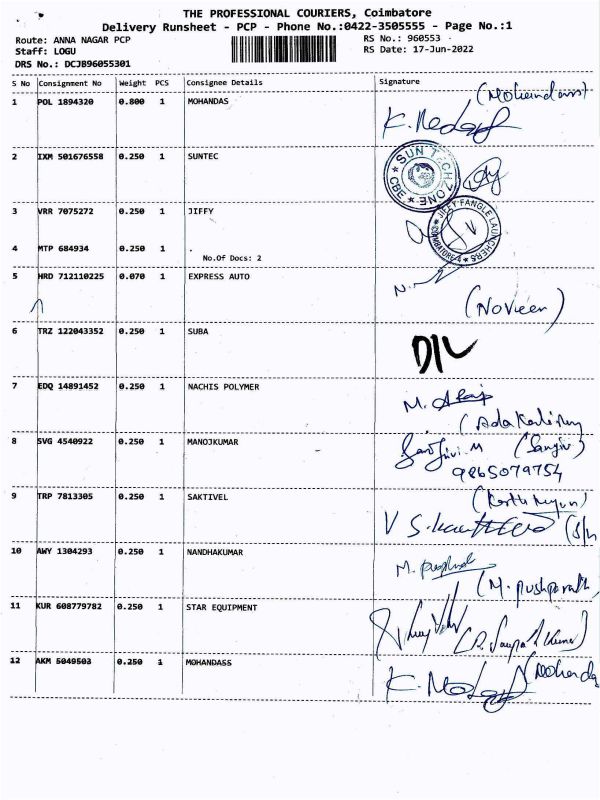 THE PROFESSIONAL COURIERS, Coimbatore
Delivery Runsheet - PCP - Phone No.:0422-3505555 - Page No.:1
Route: ANNA NAGAR PCP RS No.: 960553
Staff: LOGU RS Date: 17-Jun-2022
DRS No.: DCJB96055301
S No Consignment No Weight PCS Consignee Details Signature
1 POL 1894320 0.800 1 MOHANDAS
K. 
2 IXM 501676558 0.250 1 SUNTEC
SUN TECHZONE CBE
3 VRR 7075272 0.250 1 JIFFY
JIFFY FANGLE LAUNCHERS
4 MTP 684934 0.250 1
No.Of Docs: 2
5 HRD 712110225 0.070 1 EXPRESS AUTO
6 TRZ 122043352 0.250 1 SUBA
D/L
7 EDQ 14891452 0.250 1 NACHIS POLYMER
8 SVG 4540922 0.250 1 MANOJKUMAR
9865079754
9 TRP 7813305 0.250 1 SAKTIVEL
10 AWY 1304293 0.250 1 NANDHAKUMAR
11 KUR 608779782 0.250 1 STAR EQUIPMENT
12 AKM 5049503 0.250 1 MOHANDASS